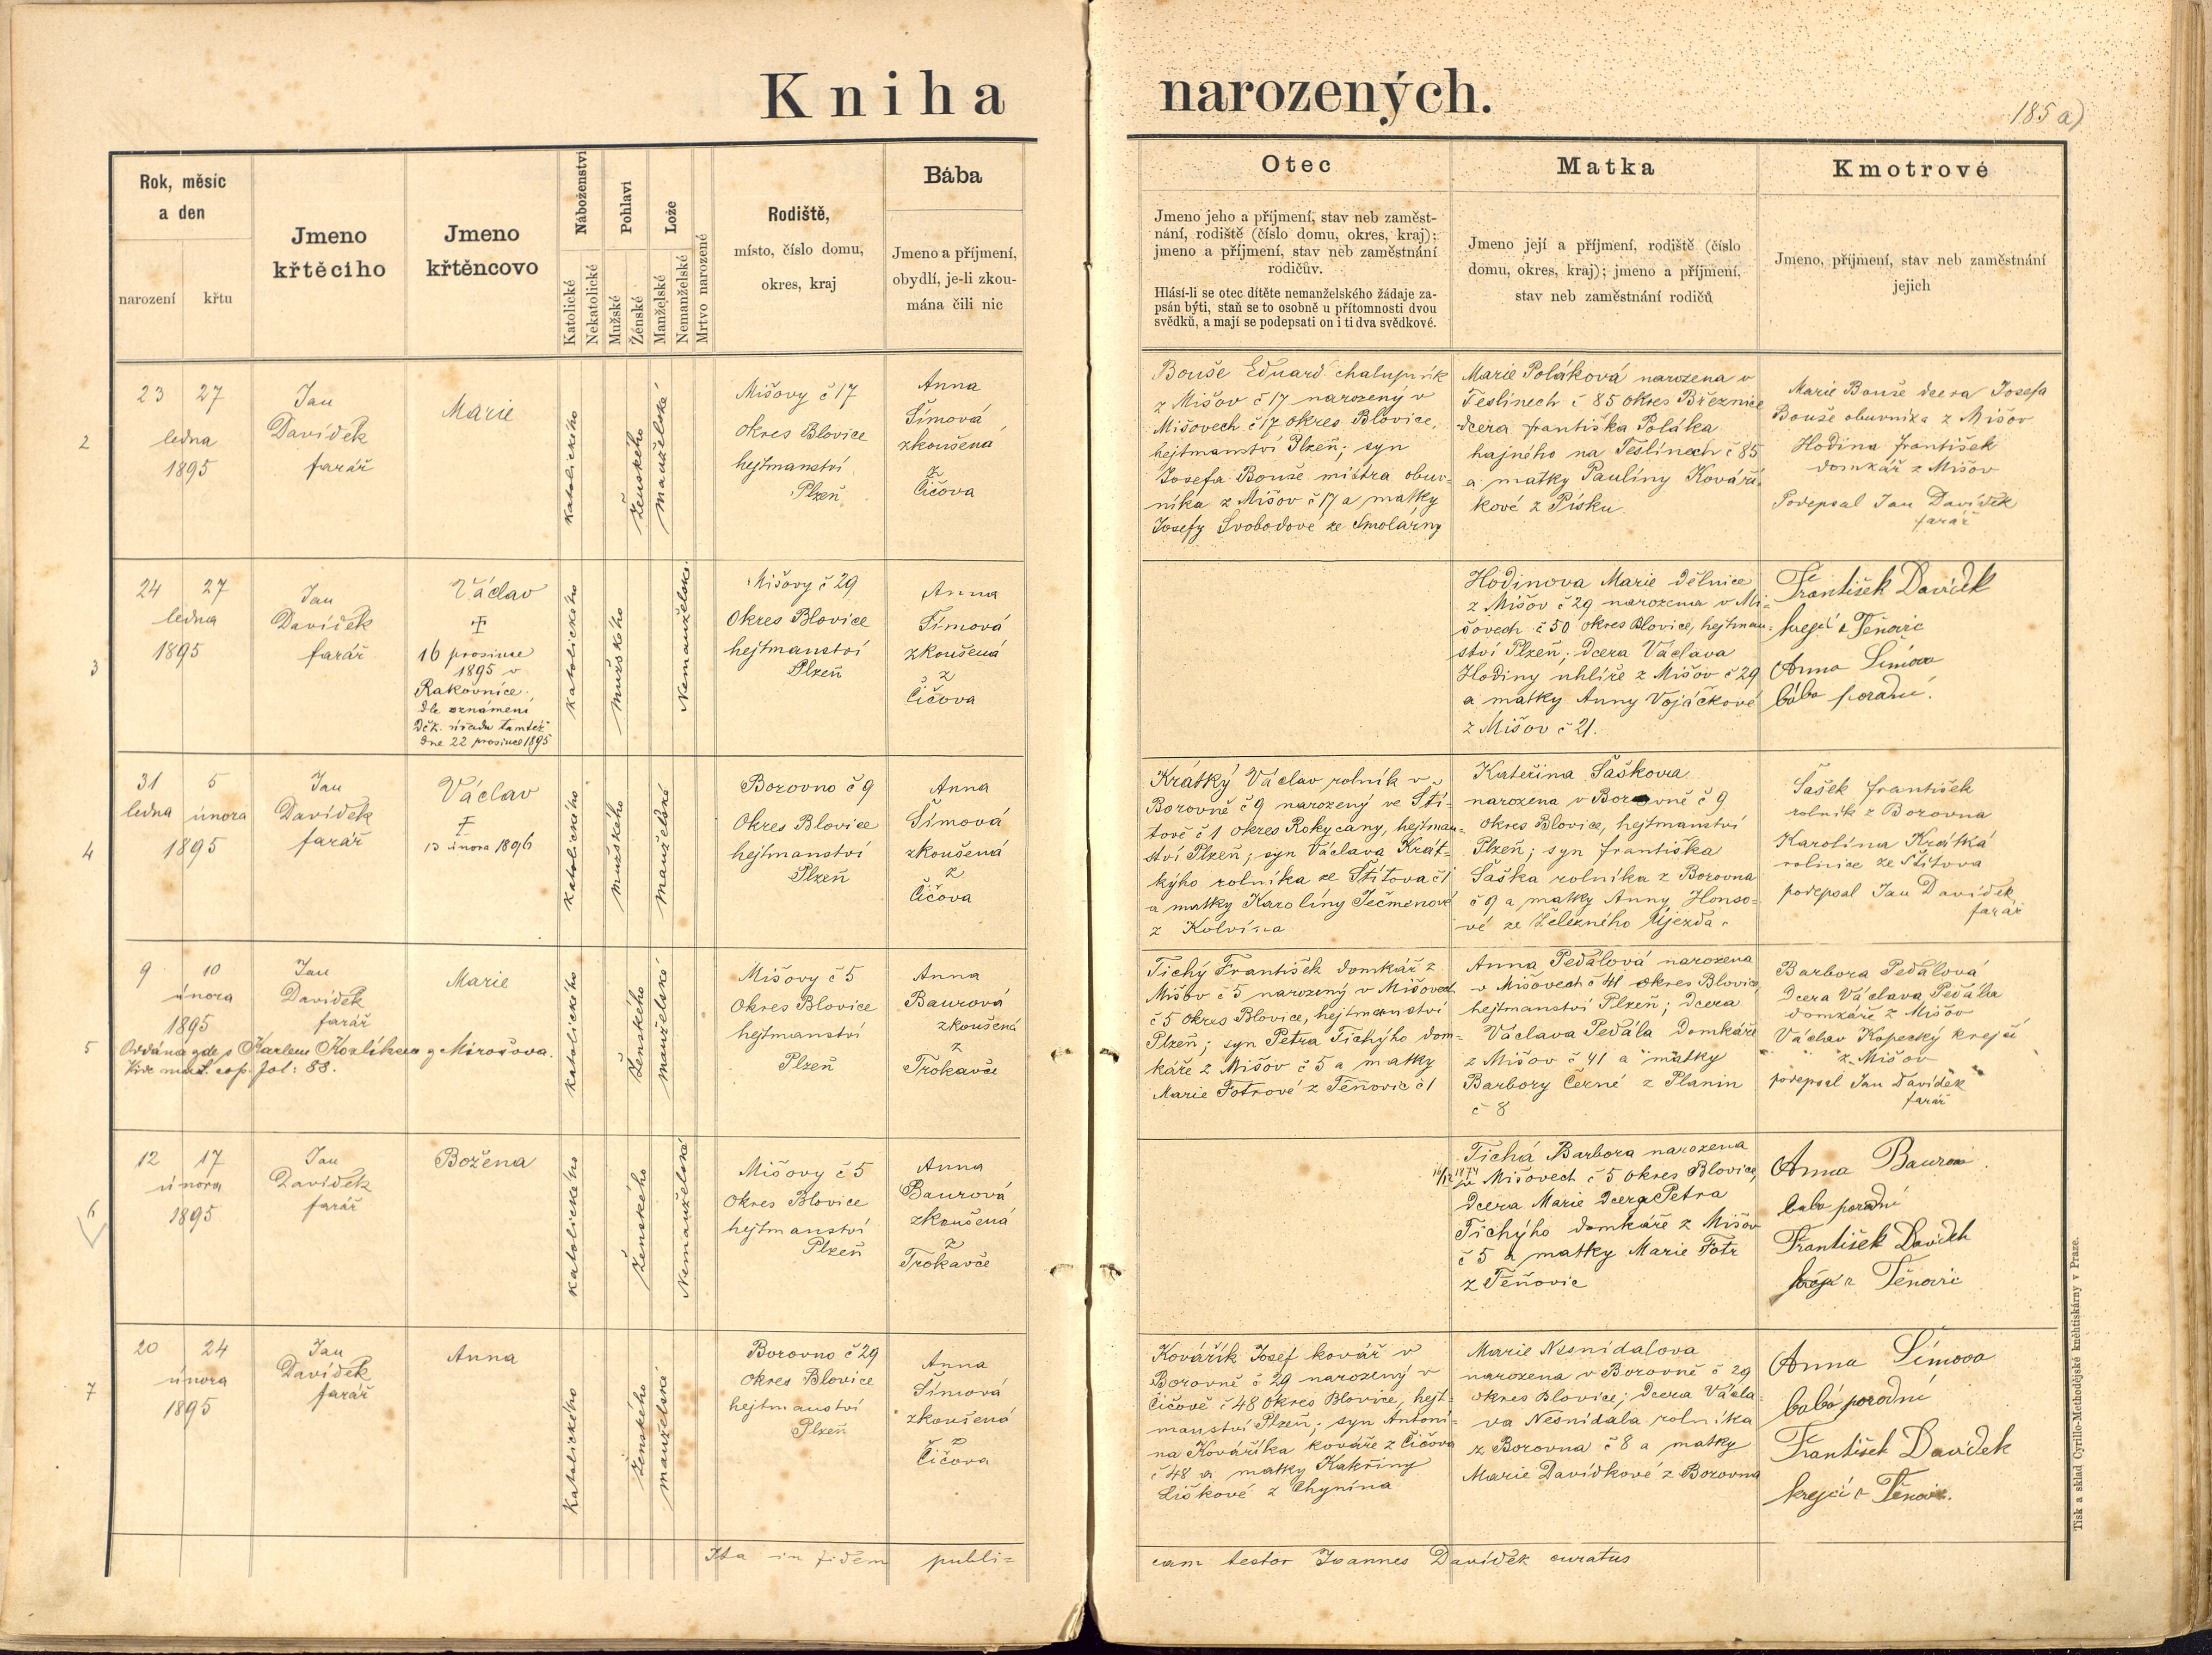 Kniha narozených.
185 a)
Rok, měsíc
a den
narození
křtu
Jmeno
křtěcího
Jmeno
křtěncovo
Náboženství
Katolické
Nekatolické
Pohlaví
Mužské
Ženské
Lože
Manželské
Nemanželské
Mrtvo narozené
Rodiště,
místo, číslo domu,
okres, kraj
Bába
Jmeno a příjmení,
obydlí, je-li zkou-
mána čili nic
Otec
Jmeno jeho a příjmení, stav neb zaměst-
nání, rodiště (číslo domu, okres, kraj);
jmeno a příjmení, stav neb zaměstnání
rodičův.
Hlásí-li se otec dítěte nemanželského žádaje za-
psán býti, staň se to osobně u přítomnosti dvou
svědků, a mají se podepsati on i ti dva svědkové.
Matka
Jmeno její a příjmení, rodiště (číslo
domu, okres, kraj); jmeno a příjmení,
stav neb zaměstnání rodičů
Kmotrové
Jmeno, příjmení, stav neb zaměstnání
jejich
2
23 27
ledna
1895
Jan
Davídek
farář
Marie
katolického
ženského
manželské
Mišovy č 17
Okres Blovice
hejtmanství
Plzeň
Anna
Šímová
zkoušená
z
Čičova
Bouše Eduard chalupník
z Mišov č 17 narozený v
Mišovech č 17 okres Blovice,
hejtmanství Plzeň; syn
Josefa Bouše mistra obuv-
níka z Mišov č 17 a matky
Josefy Svobodové ze Smolárny
Marie Poláková narozena v
Teslínech č 85 okres Březnice
dcera františka Poláka
hajného na Teslínech č 85
a matky Paulíny Kovaří-
kové z Písku
Marie Bouše dcera Josefa
Bouše obuvníka z Mišov
Hodina františek
domkář z Mišov
Podepsal Jan Davídek
farář
3
24 27
ledna
1895
Jan
Davídek
farář
Václav
16 prosince
1895 v
Rakovníce,
dle oznámení
Děk. úřadu tamtéž
dne 22 prosince 1895
katolického
mužského
Nemanželské
Mišovy č 29
Okres Blovice
hejtmanství
Plzeň
Anna
Šímová
zkoušená
z
Čičova
Hodinova Marie dělnice
z Mišov č 29 narozena v Mi-
šovech č 50 okres Blovice, hejtman-
ství Plzeň; dcera Václava
Hodiny uhlíře z Mišov č 29
a matky Anny Vojáčkové
z Mišov č 21.
František Davídek
krejčí z Těňovic
Anna Šímova
bába porodní.
4
31 5
ledna února
1895
Jan
Davídek
farář
Václav
13 února 1896
katolického
mužského
manželské
Borovno č 9
Okres Blovice
hejtmanství
Plzeň
Anna
Šímová
zkoušená
z
Čičova
Krátký Václav rolník v
Borovně č 9 narozený ve Ští-
tově č 1 okres Rokycany, hejtman-
ství Plzeň; syn Václava Krát-
kýho rolníka ze Štítova č 1
a matky Karolíny Ječmenové
z Kolvína
Kateřina Šaškova
narozena v Borovně č 9
okres Blovice, hejtmanství
Plzeň; syn františka
Šaška rolníka z Borovna
č 9 a matky Anny Honso-
vé ze Želézného Újezda.
Šašek františek
rolník z Borovna
Karolína Krátká
rolnice ze Štítova
podepsal Jan Davídek
farář
5
9 10
února
1895
Jan
Davídek
farář
Marie
Oddána zde s Karlem Kozlíkem z Mirošova.
Vide mat. cop. fol: 88.
katolického
ženského
manželské
Mišovy č 5
Okres Blovice
hejtmanství
Plzeň
Anna
Baurová
zkoušená
z
Trokavče
Tichý František domkář z
Mišov č 5 narozený v Mišovech
č 5 okres Blovice, hejtmanství
Plzeň; syn Petra Tichýho dom-
káře z Mišov č 5 a matky
Marie Fotrové z Těňovic č 1
Anna Peďálová narozena
v Mišovech č 41 okres Blovice,
hejtmanství Plzeň; dcera
Václava Peďála domkáře
z Mišov č 41 a matky
Barbory Černé z Planin
č 8
Barbora Peďálová
Dcera Václava Peďála
domkáře z Mišov
Václav Kopecký krejčí
z Mišov
podepsal Jan Davídek
farář
6
12 17
února
1895
Jan
Davídek
farář
Božena
katolického
ženského
Nemanželské
Mišovy č 5
Okres Blovice
hejtmanství
Plzeň
Anna
Baurová
zkoušená
z
Trokavče
Tichá Barbora narozena
16/12 1874 v Mišovech č 5 okres Blovice,
dcera Marie dcera Petra
Tichýho domkáře z Mišov
č 5 a matky Marie Fotr
z Těňovic
Anna Baurova
baba porodní
František Davídek
krejčí z Těňovic
7
20 24
února
1895
Jan
Davídek
farář
Anna
Katolického
ženského
manželské
Borovno č 29
Okres Blovice
hejtmanství
Plzeň
Anna
Šímová
zkoušená
z
Čičova
Kovářík Josef kovář v
Borovně č 29 narozený v
Čičově č 48 okres Blovice, hejt-
manství Plzeň; syn Antoní-
na Kováříka kováře z Čičova
č 48 a matky Kateřiny
Liškové z Chynína
Marie Nesnídalova
narozena v Borovně č 29
okres Blovice; dcera Václa-
va Nesnídala rolníka
z Borovna č 8 a matky
Marie Davídkové z Borovna
Anna Šímova
bába porodní
František Davídek
krejčí z Těňovic.
Ita in fidem publi-
cam testor Joannes Davídek curatus
Tisk a sklad Cyrillo-Methodějské knihtiskárny v Praze.